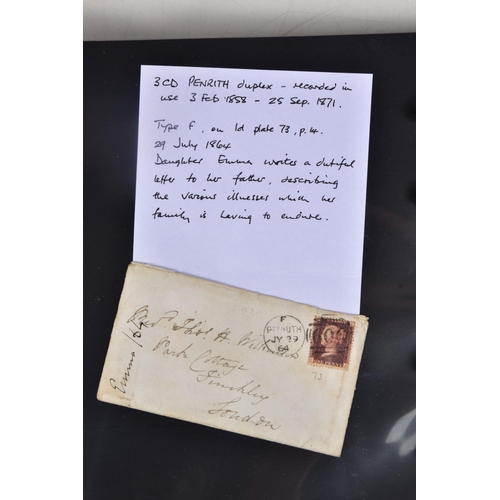 3CD PENRITH duplex - recorded in
use 3 Feb 1858 - 25 Sep. 1871.
Type F, on 1d plate 73, p.14.
29 July 1864
Daughter Emma writes a dutiful
letter to her father, describing
the various illnesses which her
family is having to endure.
F
PENRITH
JY 29
64
Thos. H.
Park Cottage
Finchley
London
Emma
73